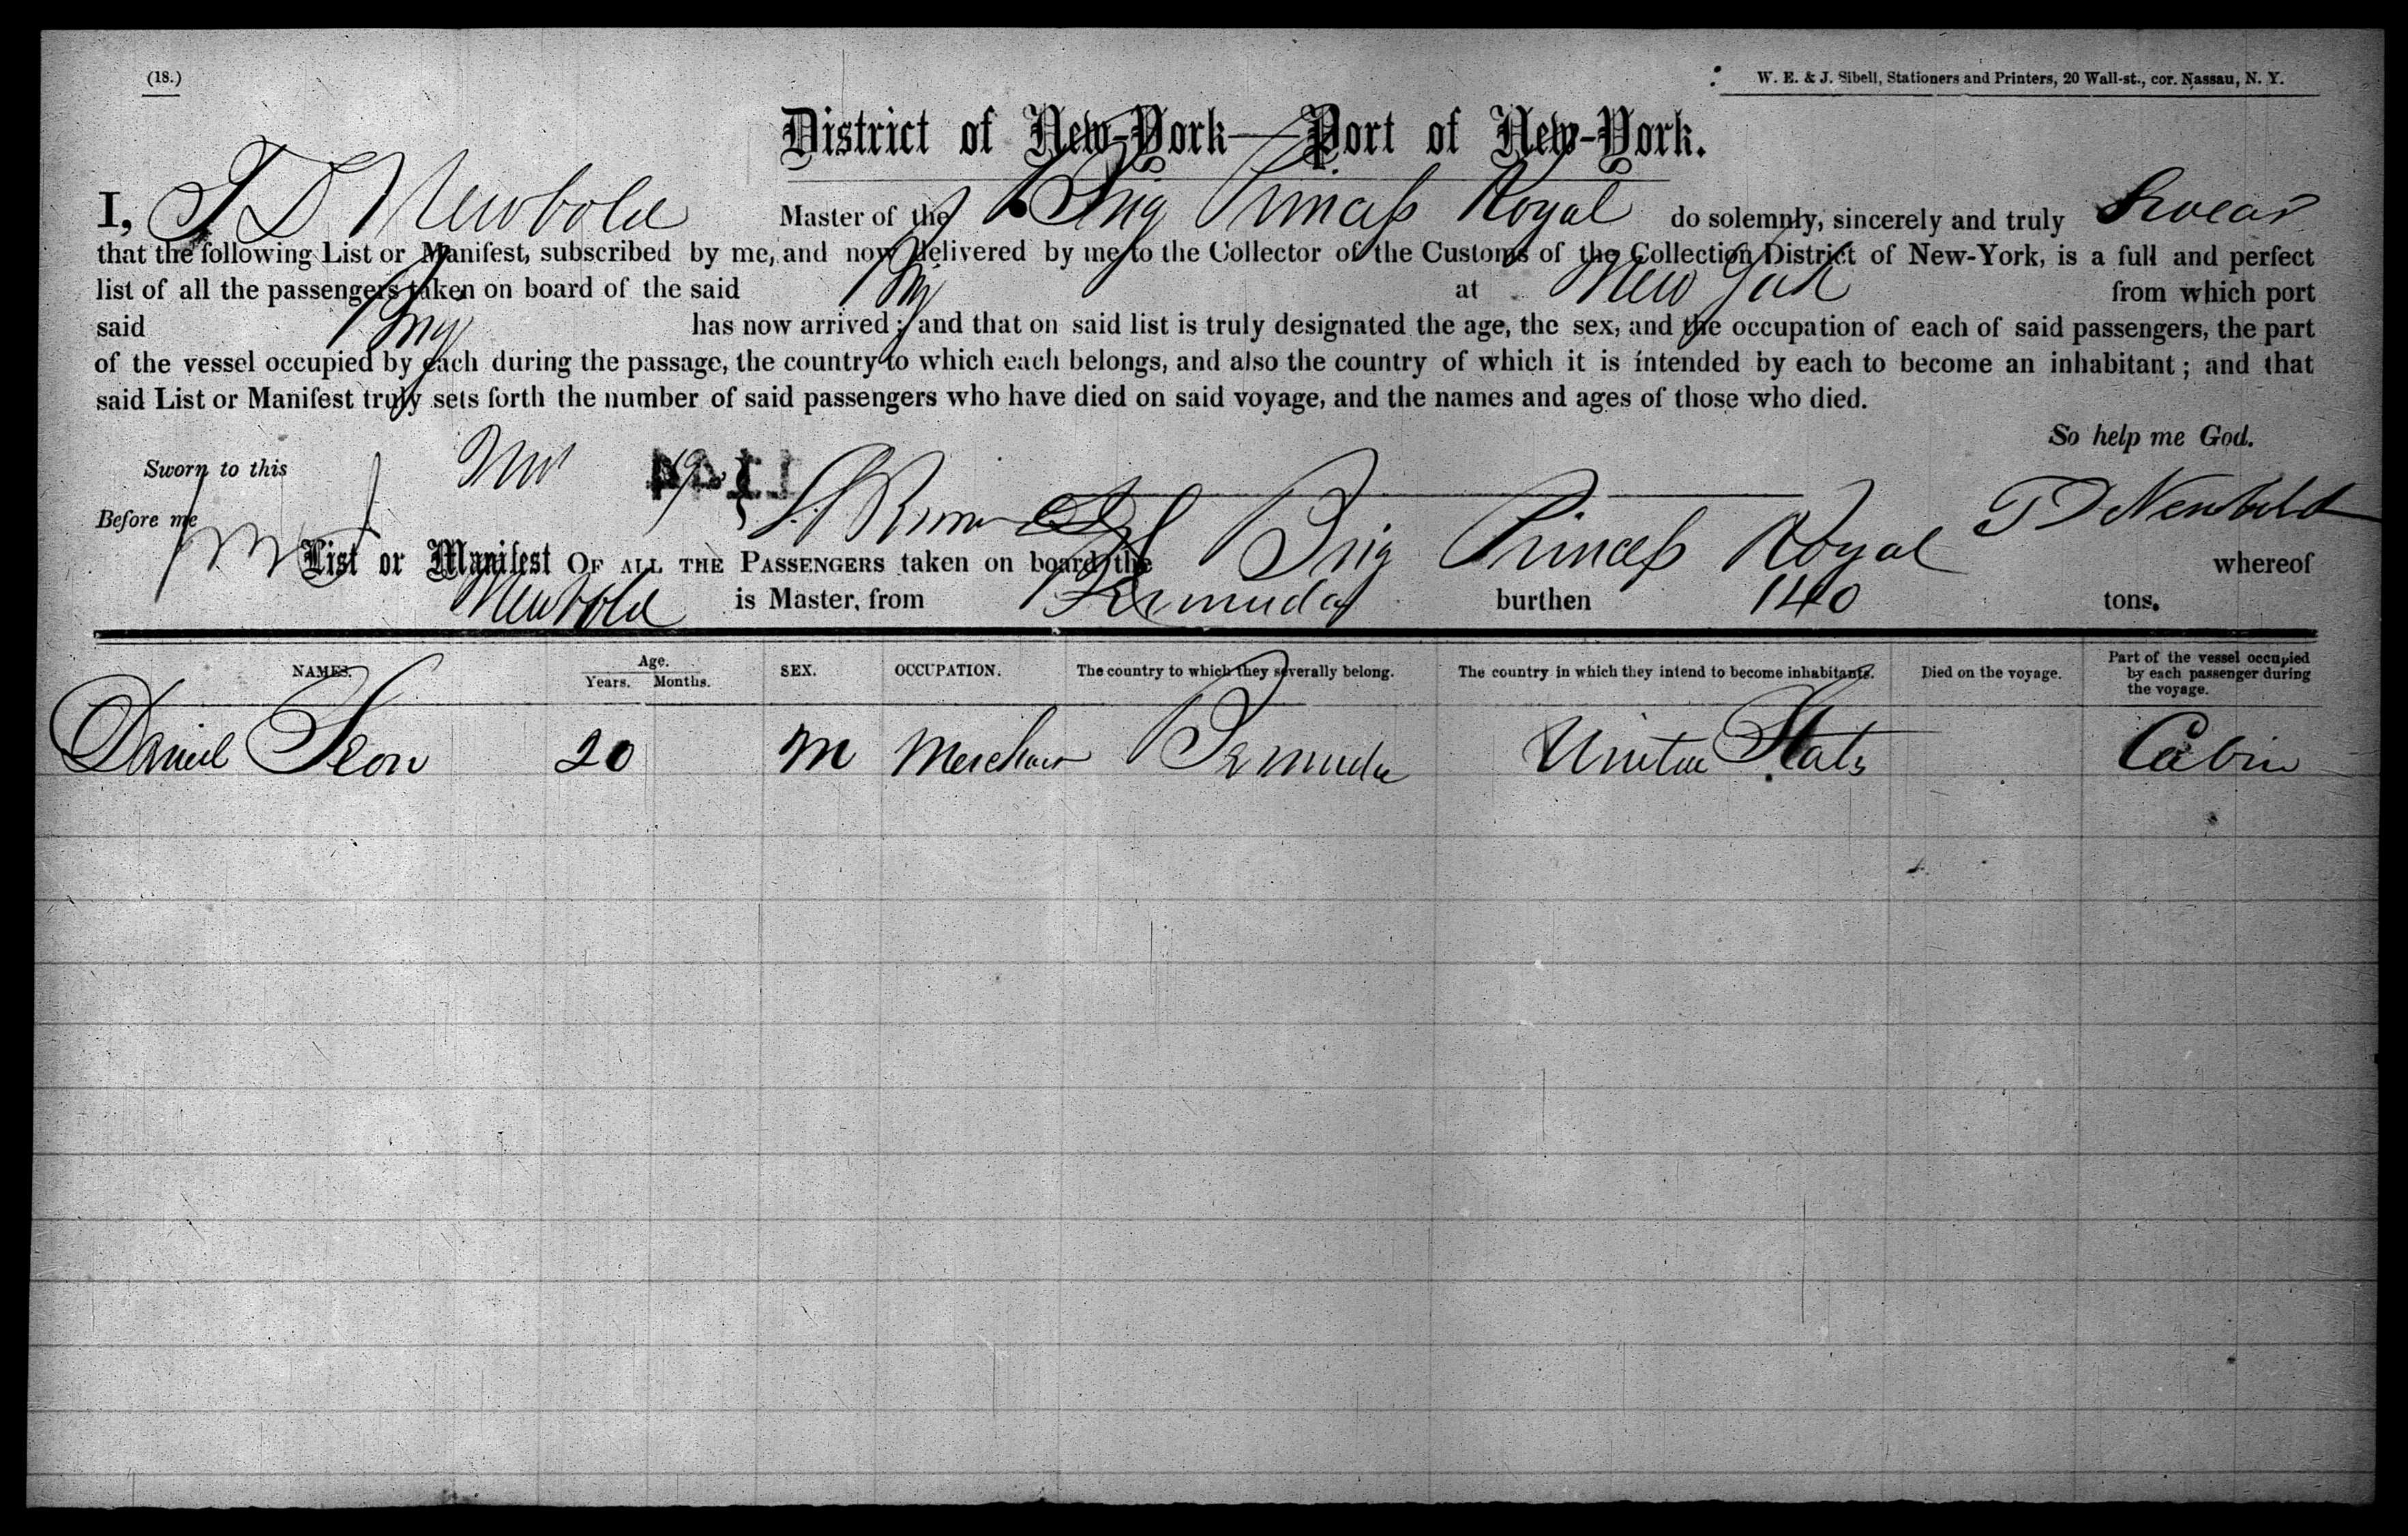 (18.)
W. E. & J. Sibell, Stationers and Printers, 20 Wall-st., cor. Nassau, N. Y.
District of New-York—Port of New-York.
I, T D Newbold Master of the Brig Princess Royal do solemnly, sincerely and truly Swear
that the following List or Manifest, subscribed by me, and now delivered by me to the Collector of the Customs of the Collection District of New-York, is a full and perfect
list of all the passengers taken on board of the said Brig at New York from which port
said Brig has now arrived; and that on said list is truly designated the age, the sex, and the occupation of each of said passengers, the part
of the vessel occupied by each during the passage, the country to which each belongs, and also the country of which it is intended by each to become an inhabitant; and that
said List or Manifest truly sets forth the number of said passengers who have died on said voyage, and the names and ages of those who died.
So help me God.
Sworn to this
Before me T D Newbold
List or Manifest OF ALL THE PASSENGERS taken on board the Brig Princess Royal whereof
Newbold is Master, from Bermuda burthen 140 tons.
NAMES. Age. Years. Months. SEX. OCCUPATION. The country to which they severally belong. The country in which they intend to become inhabitants. Died on the voyage. Part of the vessel occupied by each passenger during the voyage.
Daniel 20 M Merchant Bermuda United States Cabin